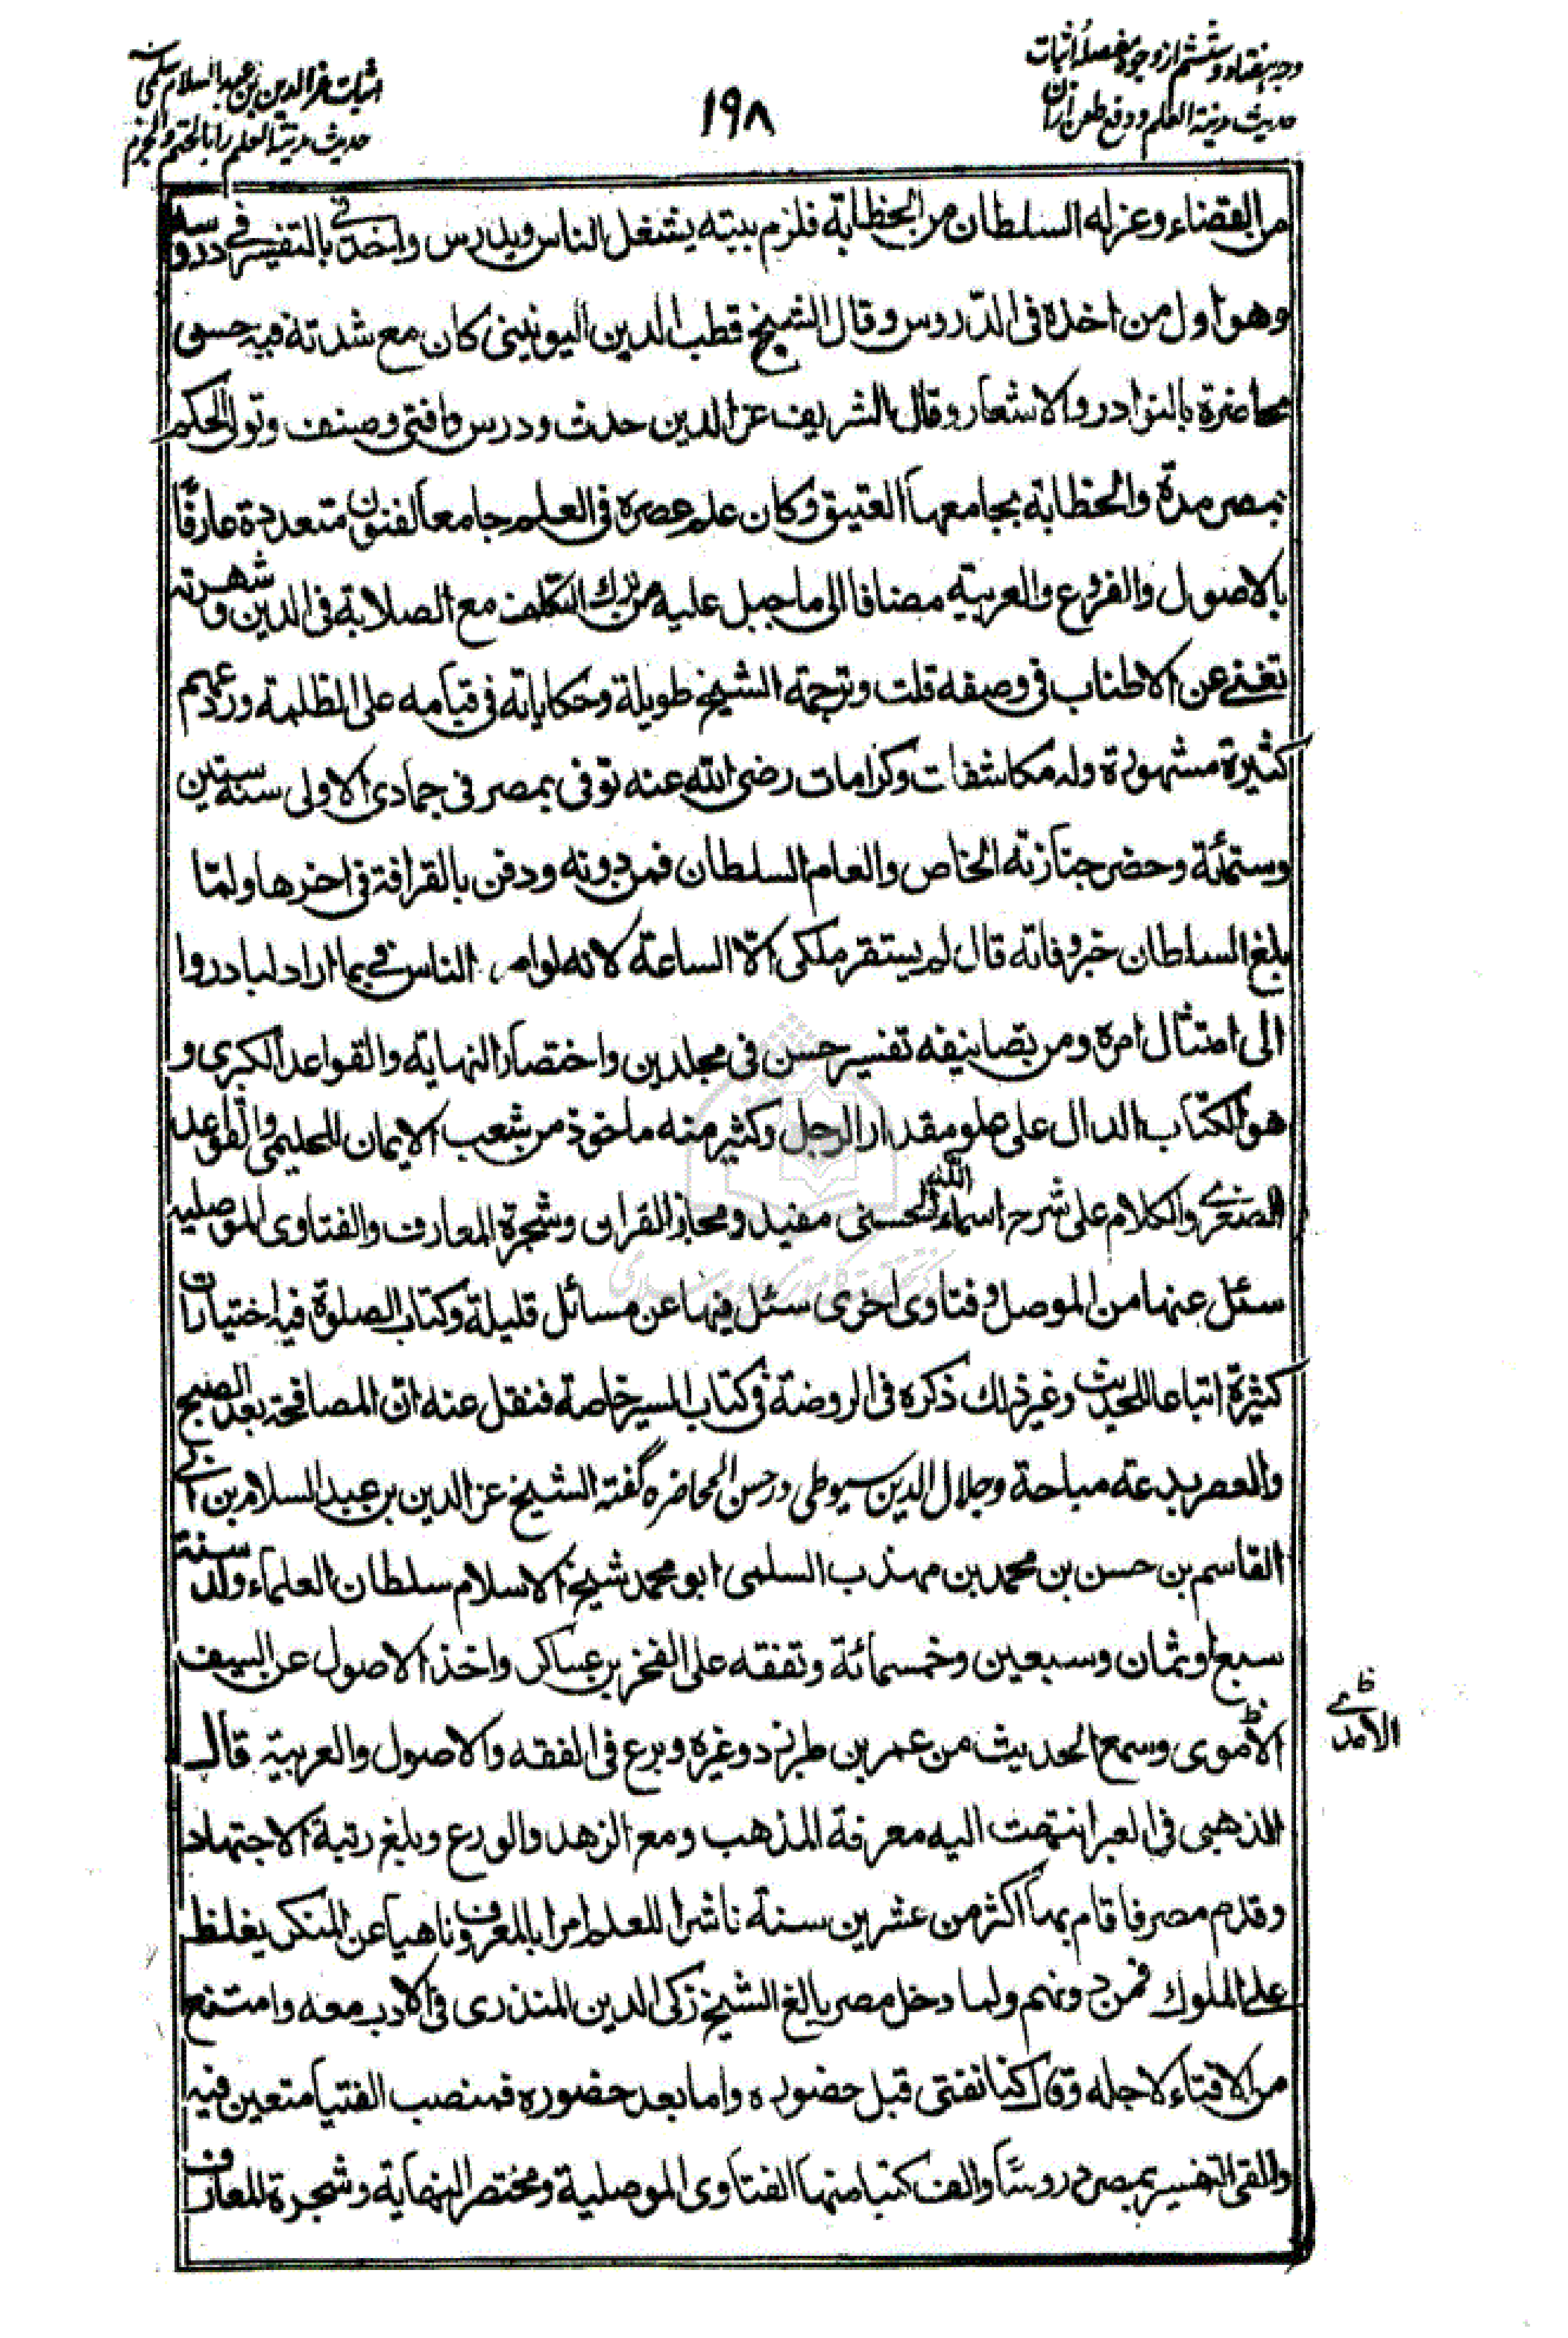 وجه هفتاد و ششم از وجوه مفصلهٔ اثبات
حدیث مدینة العلم و دفع طعن ازان
١٩٨
اثبات عز الدین بن عبد السلام سلمی
حدیث مدینة العلم را بالحتم والجزم
من القضاء وعزله السلطان من الخطابة فلزم بيته يشغل الناس ويدرس واخذ في التفسير في دروسه
وهو اول من اخذه فى الدّروس وقال الشيخ قطب الدين اليونينى كان مع شدته فيه حسن
محاضرة بالنوادر والاشعار وقال الشريف عز الدين حدث ودرس وافتى وصنف وتولى الحكم
بمصر مدة والخطابة بجامعها العتيق وكان علم عصره فى العلم جامعا لفنون متعددة عارفًا
بالاصول والفروع والعربية مضافا الى ما جبل عليه من ترك التكلف مع الصلابة فى الدين وشهرته
تغنى عن الاطناب فى وصفه قلت وترجمة الشيخ طويلة وحكاياته فى قيامه على الظلمة وردعهم
كثيرة مشهورة وله مكاشفات وكرامات رضى الله عنه توفى بمصر فى جمادى الاولى سنة ستين
وستمئة وحضر جنازته الخاص والعام السلطان فمن دونه ودفن بالقرافة فى اخرها ولمّا
بلغ السلطان خبر وفاته قال لم يستقر ملكى الّا الساعة لانه لو امر الناس فى بما اراد لبادروا
الى امتثال امره ومن تصانيفه تفسير حسن فى مجلدين واختصار النهاية والقواعد الكبرى و
هو الكتاب الدال على علو مقدار الرجل وكثير منه ماخوذ من شعب الايمان للحليمى والقواعد
الصغرى والكلام على شرح اسماء الله الحسنى مفيد ومجاز القران وشجرة المعارف والفتاوى الموصلية
سئل عنها من الموصل وفتاوى اخرى سئل فيها عن مسائل قليلة وكتاب الصلوة فيه اختيارات
كثيرة اتباعا للحديث وغير ذلك ذكره فى الروضة فى كتاب السير خاصة فنقل عنه انّ المصافحة بعد الصبح
والعصر بدعة مباحة وجلال الدين سيوطى در حسن المحاضره گفته الشيخ عز الدين بن عبد السلام بن ابى
القاسم بن حسن بن محمد بن مهذب السلمى ابو محمد شيخ الاسلام سلطان العلماء ولد سنة
سبع او ثمان وسبعين وخمسمائة وتفقه على الفخر بن عساكر واخذ الاصول عن السيف
الأموى وسمع الحديث من عمر بن طبرزد وغيره وبرع فى الفقه والاصول والعربية قال
الآمدى ظ
الذهبى فى العبر انتهت اليه معرفة المذهب ومع الزهد والورع وبلغ رتبة الاجتهاد
وقدم مصر فاقام بها اكثر من عشرين سنة ناشرا للعلم امرا بالمعروف ناهيا عن المنكر يغلظ
على الملوك فمن دونهم ولما دخل مصر بالغ الشيخ زكى الدين المنذرى فى الادب معه وامتنع
من الافتاء لاجله وقال كنا نفتى قبل حضوره واما بعد حضوره فمنصب الفتيا متعين فيه
والقى التفسير بمصر دروسًا والف كتبا منها الفتاوى الموصلية ومختصر النهاية وشجرة المعارف